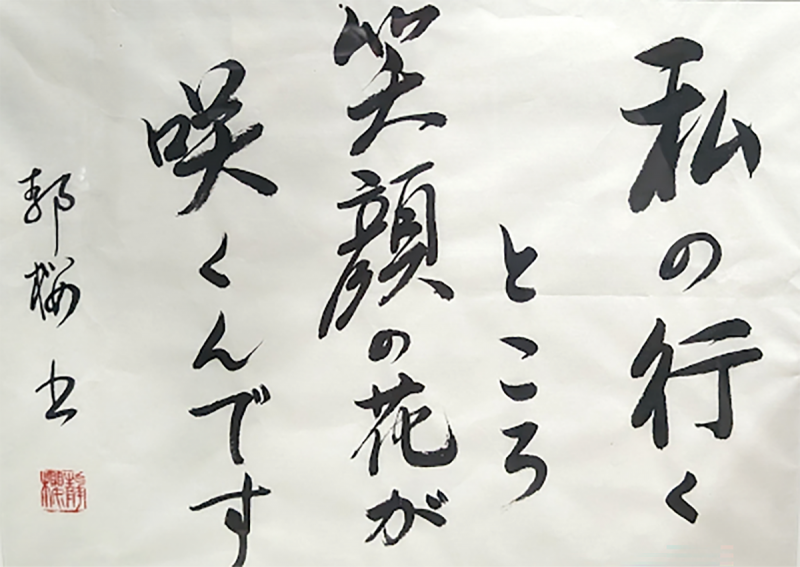 私の行く
ところ
笑顔の花が
咲くんです
郭桜书
静櫻